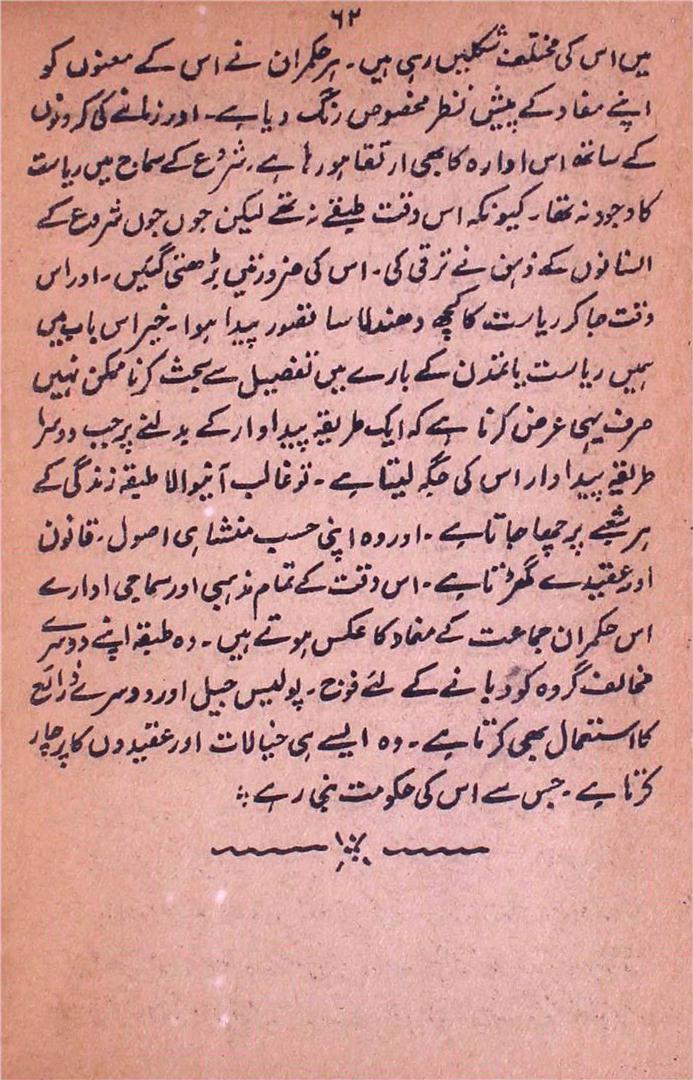 ۶۲
میں اس کی مختلف شکلیں رہی ہیں۔ ہر حکمران نے اس کے معنوں کو
اپنے مفاد کے پیش نظر مخصوص رنگ دیا ہے۔ اور زمانے کی کروٹوں
کے ساتھ اس ادارہ کا بھی ارتقا ہو رہا ہے۔ شروع کے سماج میں ریاست
کا وجود نہ تھا۔ کیونکہ اس وقت طبقے نہ تھے لیکن جوں جوں شروع کے
انسانوں کے ذہن نے ترقی کی۔ اس کی ضرورتیں بڑھتی گئیں۔ اور اس
وقت جا کر ریاست کا کچھ دھندلا سا تصور پیدا ہوا۔ خیر اس باب میں
ہمیں ریاست یا تمدن کے بارے میں تفصیل سے بحث کرنا ممکن نہیں
صرف یہی عرض کرنا ہے کہ ایک طریقۂ پیداوار کے بدلنے پر جب دوسرا
طریقۂ پیداوار اس کی جگہ لیتا ہے۔ تو غالب آنیوالا طبقہ زندگی کے
ہر شعبے پر چھا جاتا ہے۔ اور وہ اپنی حسب منشا ہی اصول۔ قانون
اور عقیدے گھڑتا ہے۔ اس وقت کے تمام مذہبی اور سماجی ادارے
اس حکمران جماعت کے مفاد کا عکس ہوتے ہیں۔ وہ طبقہ اپنے دوسرے
مخالف گروہ کو دبانے کے لئے فوج۔ پولیس جیل اور دوسرے ذرائع
کا استعمال بھی کرتا ہے۔ وہ ایسے ہی خیالات اور عقیدوں کا پرچار
کرتا ہے۔ جس سے اس کی حکومت بنی رہے ⁘